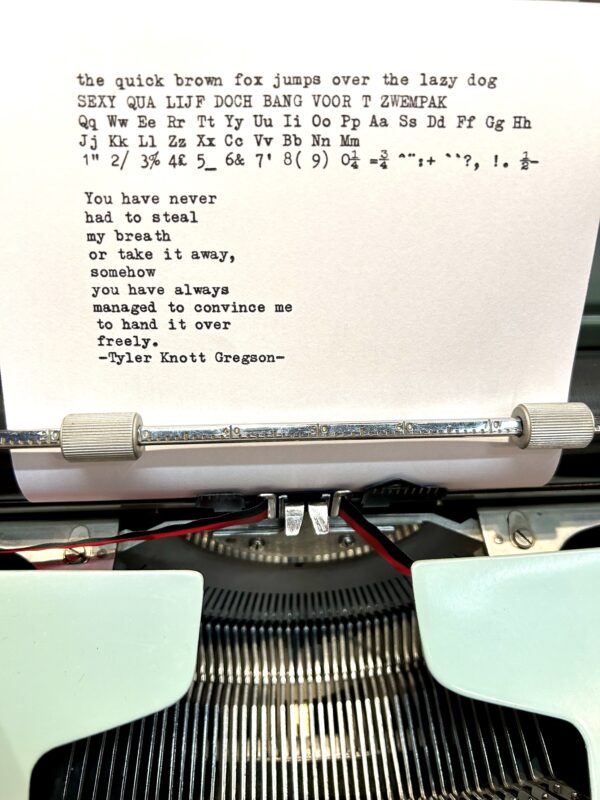 the quick brown fox jumps over the lazy dog
SEXY QUA LIJF DOCH BANG VOOR T ZWEMPAK
Qq Ww Ee Rr Tt Yy Uu Ii Oo Pp Aa Ss Dd Ff Gg Hh
Jj Kk Ll Zz Xx Cc Vv Bb Nn Mm
1" 2/ 3% 4£ 5_ 6& 7' 8( 9) 0¼ =¾ ^¨;+ ``?, !. ½-
You have never
had to steal
my breath
or take it away,
somehow
you have always
managed to convince me
to hand it over
freely.
-Tyler Knott Gregson-